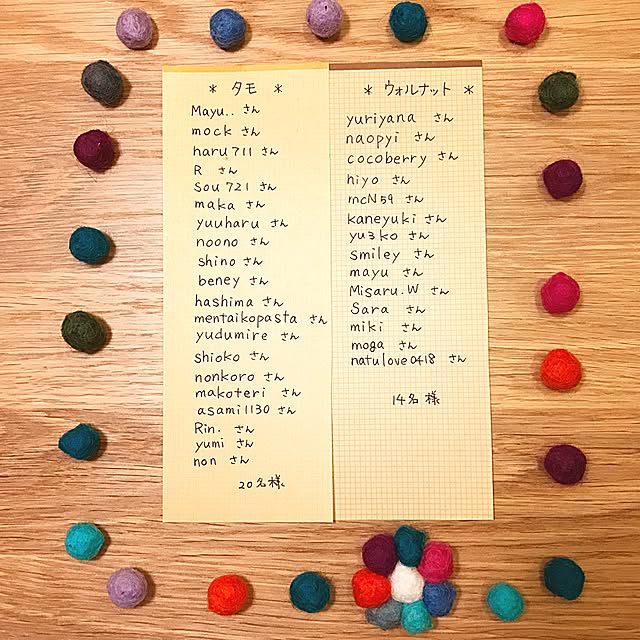 * タモ *
Mayu.. さん
mock さん
haru711 さん
R さん
Sou721 さん
maka さん
yuuharu さん
noono さん
shino さん
beney さん
hashima さん
mentaikopasta さん
yudumire さん
shioko さん
nonkoro さん
makoteri さん
asami1130 さん
Rin. さん
yumi さん
non さん
20名様
* ウォルナット *
yuriyana さん
naopyi さん
cocoberry さん
hiyo さん
mcN59 さん
kaneyuki さん
yu3ko さん
smiley さん
mayu さん
Misaru.W さん
Sara さん
miki さん
moga さん
natulove0418 さん
14名様